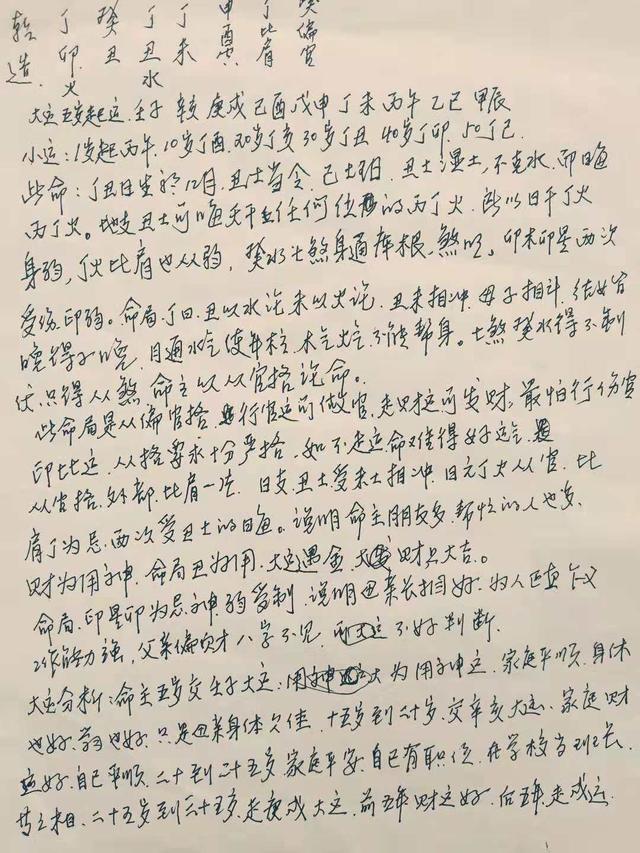 乾造 丁卯火 癸丑 丁丑水 丁未 申酉 丁比肩 癸偏官
大运五岁起运 壬子 辛亥 庚戌 己酉 戊申 丁未 丙午 乙巳 甲辰
小运：1岁起丙午 10岁丁酉 20岁丁亥 30岁丁丑 40岁丁卯 50丁巳
此命：丁丑日生于12月 丑土当令 己土 丑土湿土，不克水 而晦
丙丁火。地支丑土可晦天干任何位的丙丁火 所以日干丁火
身弱，丁火比肩也从弱，癸水七煞身通库根、煞旺 卯未卯星两次
受伤 印弱。命局 丁日 丑以水论 未以火论 丑未相冲 母子相斗 结婚
晚得子晚 月通水气使年柱 木气火气不能帮身。七煞癸水得不制
伏 只得从煞 命主以从官格论命。
此命局是从偏官格 行官运可做官 走财运可发财 最怕行伤官
印比运 从格要求十分严格 如不走运命难得好运气
从官格 外部 比肩一位 日支丑土受未土相冲 日元丁火从官 比
肩丁为忌 两次受丑土的晦。说明命主朋友多 帮忙的人也多
财为用神 命局丑为用 大运遇金 财上大吉。
命局 印星卯为忌神 弱受制 说明母亲长相好 为人正直
工作能力强，父亲偏财八字不见 不好判断
大运分析：命主五岁交壬子大运 为用神运 家庭平顺 身体
也好 学习也好 只是母亲身体欠佳 十五岁到二十岁 交辛亥大运 家庭财
运好 自己平顺 二十到二十五岁 家庭平安 自己有职位 在学校当班长
二十五岁到三十五岁 走庚戌大运 前五年财运好 后五年走戌运